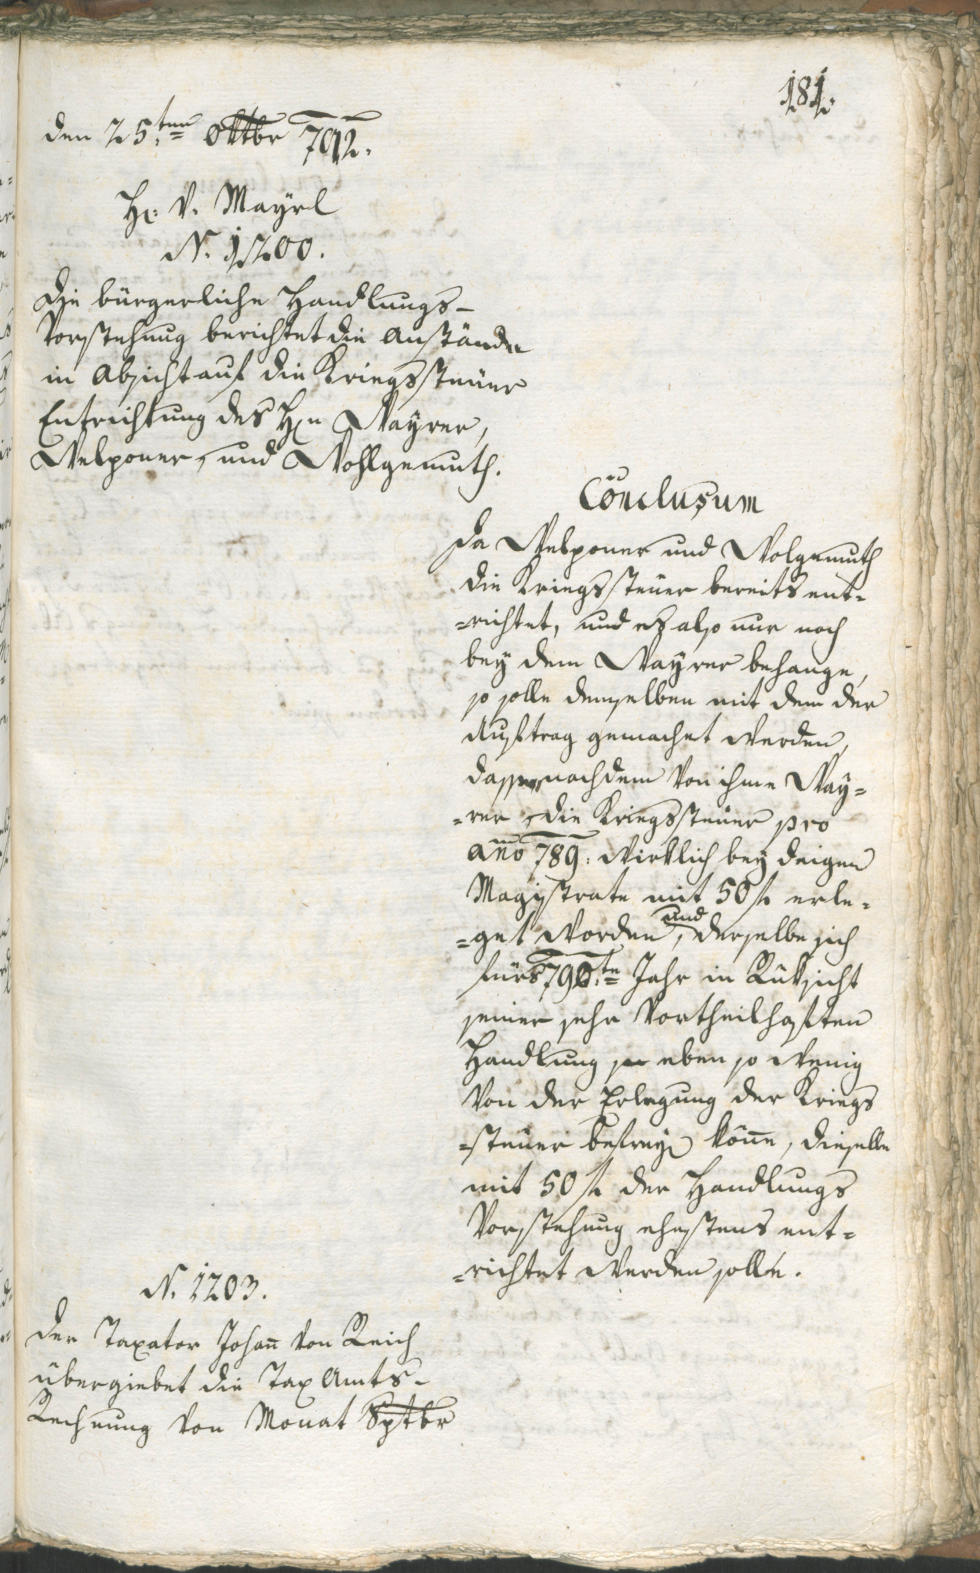 181.
den 25.ten 8ktbr 792.
H: v. Mayrl
N. 1200.
Die bürgerliche Handlungs-
Vorstehung berichtet die Anstände
in Absicht auf die Kriegssteuer
Entrichtung des H:n Mayrer,
Welponer, und Wohlgemuth.
Conclusum
Da Welponer und Wolgemuth
die Kriegssteuer bereits ent-
-richtet, und es also nur noch
bey dem Mayrer behange,
so solle demselben mit dem der
Auftrag gemachet werden,
dass nachdem von ihme May-
-rer, die Kriegssteuer pro
año 789: wirklich bey
Magistrate mit 50 f. erle-
-get worden, und derselbe sich
fürs 790.te Jahr in Rüksicht
seiner sehr vortheilhaften
Handlung eben so wenig
von der Erlegung der Kriegs
-steuer befreyen könne, dieselbe
mit 50 f. der Handlungs
Vorstehung ehestens ent-
-richtet werden solle.
N. 1203.
Der Taxator Johañ von Reich
übergiebet die Tax Amts-
Rechnung von Monat Sptbr